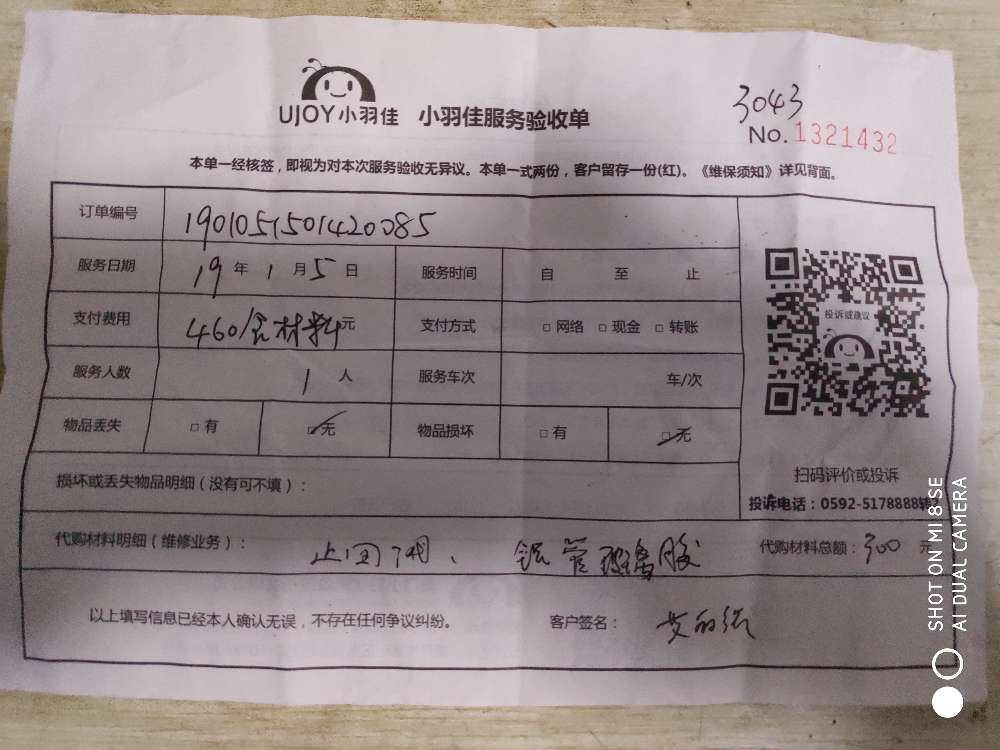 3043
UJOY小羽佳 小羽佳服务验收单
No.1321432
本单一经核签，即视为对本次服务验收无异议。本单一式两份，客户留存一份(红)。《维保须知》详见背面。
订单编号 1901051501420085
服务日期 19年1月5日 服务时间 自 至 止
支付费用 460/含材料元 支付方式 □网络 □现金 □转账
投诉或建议
服务人数 1人 服务车次 车/次
物品丢失 □有 □无 物品损坏 □有 □无
扫码评价或投诉
损坏或丢失物品明细（没有可不填）：
投诉电话：0592-5178888转2
代购材料明细（维修业务）： 止回阀、 铝管 玻璃胶 代购材料总额：300元
以上填写信息已经本人确认无误，不存在任何争议纠纷。 客户签名：
SHOT ON MI 8SE
AI DUAL CAMERA